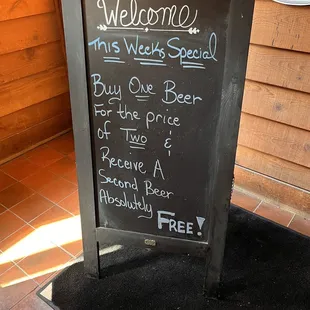 Welcome
This Weeks Special
Buy One Beer
For the price
of Two &
Receive A
Second Beer
Absolutely
FREE!